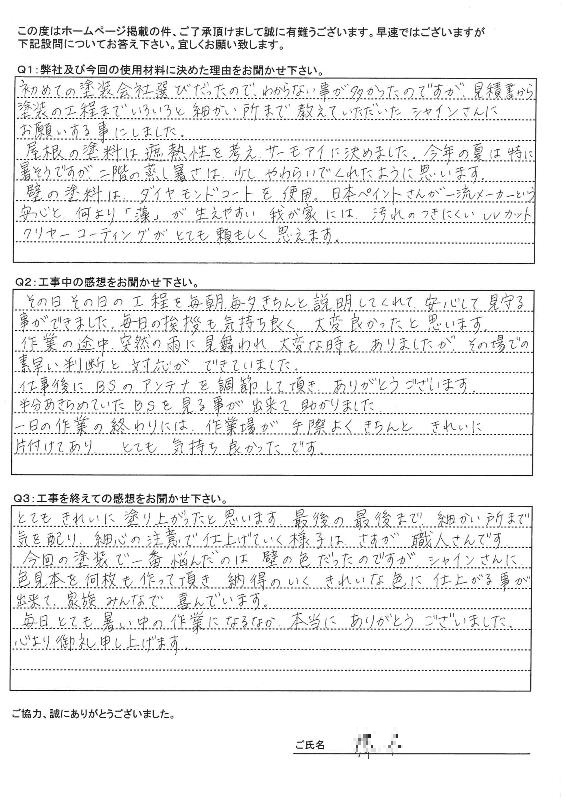 この度はホームページ掲載の件、ご了承頂けまして誠に有難うございます。早速ではございますが
下記設問についてお答え下さい。宜しくお願い致します。
Q1：弊社及び今回の使用材料に決めた理由をお聞かせ下さい。
初めての塗装会社選びだったので、わからない事が多かったのですが、見積書から
塗装の工程までいろいろと細かい所まで教えていただいたシャインさんに
お願いする事にしました。
屋根の塗料は遮熱性を考え、サーモアイに決めました。今年の夏は特に
暑そうですが二階の蒸し暑さは少しやわらいでくれたように思います。
壁の塗料は、ダイヤモンドコートを使用。日本ペイントさんが一流メーカーという
安心と、何より「藻」が生えやすい我が家には、汚れのつきにくいUVカット
クリヤーコーティングがとても頼もしく思えます。
Q2：工事中の感想をお聞かせ下さい。
その日その日の工程を毎朝毎夕きちんと説明してくれて、安心して見守る
事ができました。毎日の挨拶も気持ち良く、大変良かったと思います。
作業の途中、突然の雨に見舞われ大変な時もありましたが、その場での
素早い判断と対応ができていました。
仕事後にBSのアンテナを調節して頂きありがとうございます。
半分あきらめていたBSを見る事が出来て助かりました
一日の作業の終わりには、作業場が手際よくきちんときれいに
片付けてあり、とても気持ち良かったです。
Q3：工事を終えての感想をお聞かせ下さい。
とてもきれいに塗り上がったと思います。最後の最後まで細かい所まで
気を配り、細心の注意で仕上げていく様子はさすが職人さんです
今回の塗装で一番悩んだのは壁の色だったのですがシャインさんに
色見本を何枚も作って頂き納得のいくきれいな色に仕上がる事が
出来て、家族みんなで喜んでいます。
毎日とても暑い中の作業になるなか本当にありがとうございました。
心より御礼申し上げます。
ご協力、誠にありがとうございました。
ご氏名